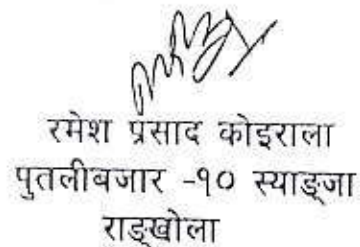 रमेश प्रसाद कोइराला
पुतलीबजार -१० स्याङ्जा
राङ्खोला